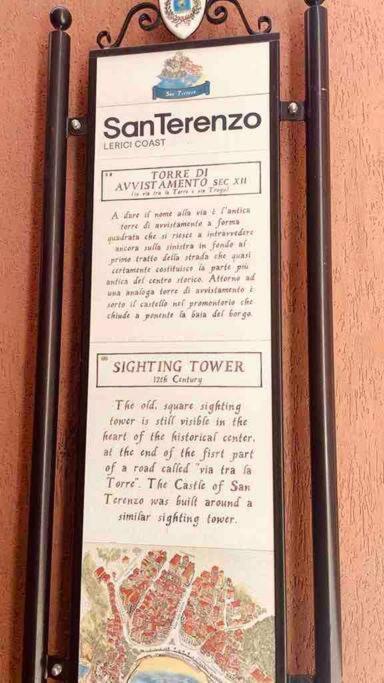 San Terenzo
SanTerenzo
LERICI COAST
TORRE DI
AVVISTAMENTO SEC XII
(in via tra la Torre e via Trogu)
A dare il nome alla via è l'antica
torre di avvistamento a forma
quadrata che si riesce a intravvedere
ancora sulla sinistra in fondo al
primo tratto della strada che quasi
certamente costituisce la parte più
antica del centro storico. Attorno ad
una analoga torre di avvistamento è
sorto il castello nel promontorio che
chiude a ponente la baia del borgo.
SIGHTING TOWER
12th Century
The old, square sighting
tower is still visible in the
heart of the historical center,
at the end of the fisrt part
of a road called "via tra la
Torre". The Castle of San
Terenzo was built around a
similar sighting tower.